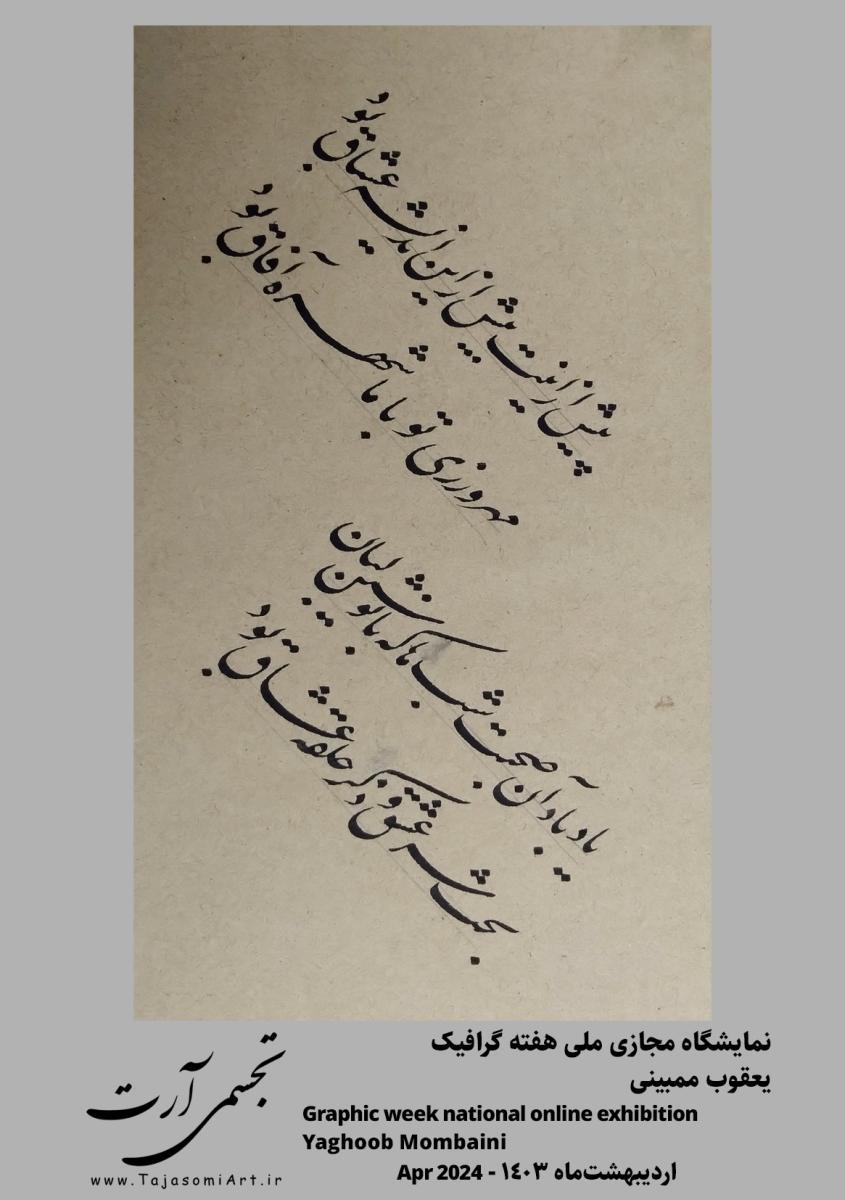 پیش ازینت بیش ازین اندیشه عشاق بود
مهرورزی تو با ما شهره آفاق بود
یاد باد آن صحبت شبها که با نوشین لبان
بحث سر عشق و ذکر حلقه عشاق بود
نمایشگاه مجازی ملی هفته گرافیک
یعقوب ممبینی
Graphic week national online exhibition
Yaghoob Mombaini
اردیبهشت‌ماه ١٤٠٣ - Apr 2024
تجسمی آرت
www.TajasomiArt.ir